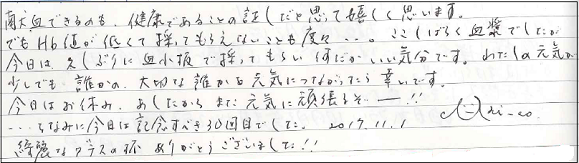 献血できるのも、健康であることの証しだと思って嬉しく思います。
でもHb値が低くて採ってもらえないことも度々…。ここしばらく血漿でしたが
今日は久しぶりに血小板で採ってもらい何だかいい気分です。わたしの元気が
少しでも誰かの、大切な誰かの元気につながったら幸いです。
今日はお休み、あしたからまた元気に頑張るぞー!!
…ちなみに今日は記念すべき30回目でした。2017.11.1
綺麗なグラスの孤 ありがとうございました!!